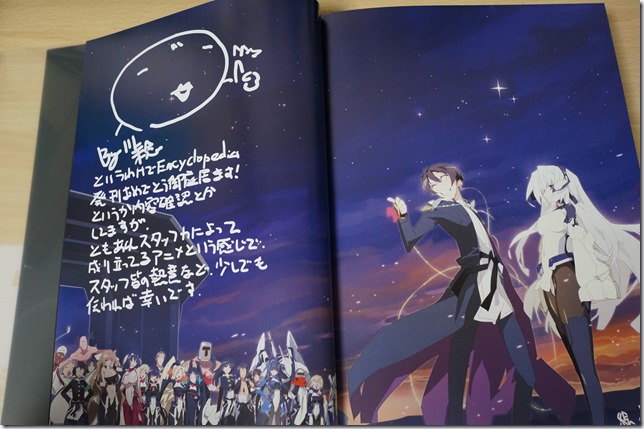 By 川上稔
というわけでEncyclopedia
発刊おめでとう御座居ます!
というか内容確認とか
してますが。
ともあれスタッフ力によって
成り立ってるアニメという感じで、
スタッフ皆の熱意など、少しでも
伝われば幸いです。